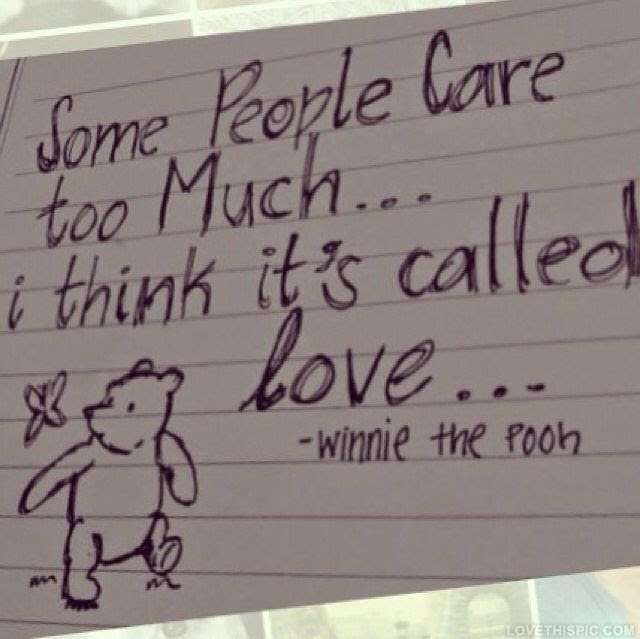 Some People Care
too Much...
i think it's called
love...
-winnie the Pooh
LOVETHISPIC.COM